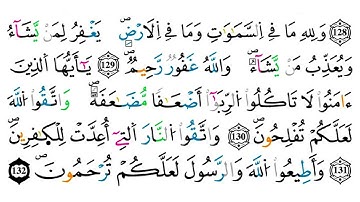 (128) وَلِلهِ مَا فِي اِ۬لسَّمَٰوَٰتِ وَمَا فِي اِ۬لَارْضِۖ يَغْفِرُ لِمَنْ يَّشَآءُ
وَيُعَذِّبُ مَنْ يَّشَآءُۖ وَاللَّهُ غَفُورٞ رَّحِيمٞۖ (129) يَٰٓأَيُّهَا اَ۬لذِينَ
ءَامَنُواْ لَا تَاكُلُواْ اُ۬لرِّبَوٰٓاْ أَضْعَٰفاٗ مُّضَٰعَفَةٗۖ وَاتَّقُواْ اُ۬للَّهَ
لَعَلَّكُمْ تُفْلِحُونَۖ (130) وَاتَّقُواْ اُ۬لنَّارَ اَ۬لتِےٓ أُعِدَّتْ لِلْكٰ۪فِرِينَۖ
(131) وَأَطِيعُواْ اُ۬للَّهَ وَالرَّسُولَ لَعَلَّكُمْ تُرْحَمُونَۖ (132)